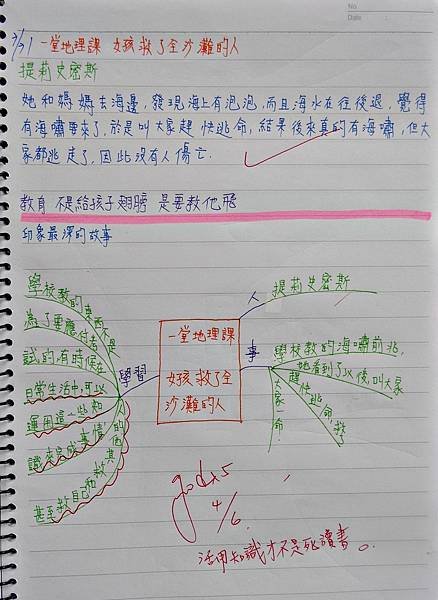 No.
Date
3/31 一堂地理課 女孩救了全沙灘的人
提莉史密斯
她和媽媽去海邊,發現海上有泡泡,而且海水在往後退,覺得
有海嘯要來了,於是叫大家趕快逃命,結果後來真的有海嘯,但大
家都逃走了,因此沒有人傷亡.
教育 不是給孩子翅膀 是要教他飛
印象最深的故事
一堂地理課
女孩救了全
沙灘的人
人
提莉史密斯
事
學校教的海嘯前兆,
她看到了以後,叫大家
趕快逃命,救
大家一命.
學習
學校教的東西不是
為了要應付考
試的有時候在
日常生活中可以
運用這一些知
識來完成事情
甚至救自己和救其
他的人
good x5
4/6
活用知識才不是死讀書。